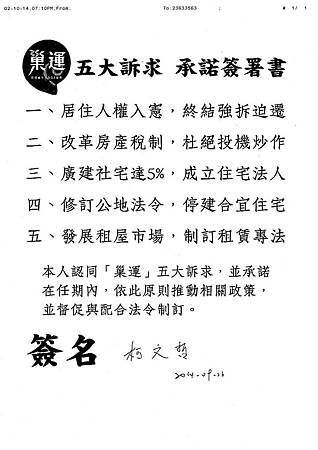 02-10-14;07:10PM;From: To:23633563 # 1/ 1
巢運 五大訴求 承諾簽署書
一、居住人權入憲，終結強拆迫遷
二、改革房產稅制，杜絕投機炒作
三、廣建社宅達5%，成立住宅法人
四、修訂公地法令，停建合宜住宅
五、發展租屋市場，制訂租賃專法
本人認同「巢運」五大訴求，並承諾
在任期內，依此原則推動相關政策，
並督促與配合法令制訂。
簽名 柯文哲